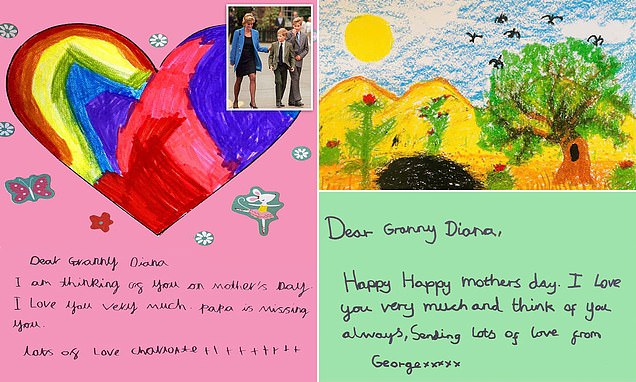 Dear Granny Diana
I am thinking of you on mother's Day.
I Love You very much. Papa is missing
you.
Lots of Love Charlotte + + + + + + + +
Dear Granny Diana,
Happy Happy mothers day. I Love
you very much and think of you
always, Sending lots of love from
Georgexxxxx